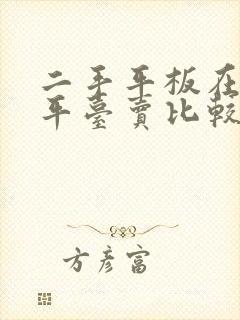 二手平板在
平臺賣比較
方彥富